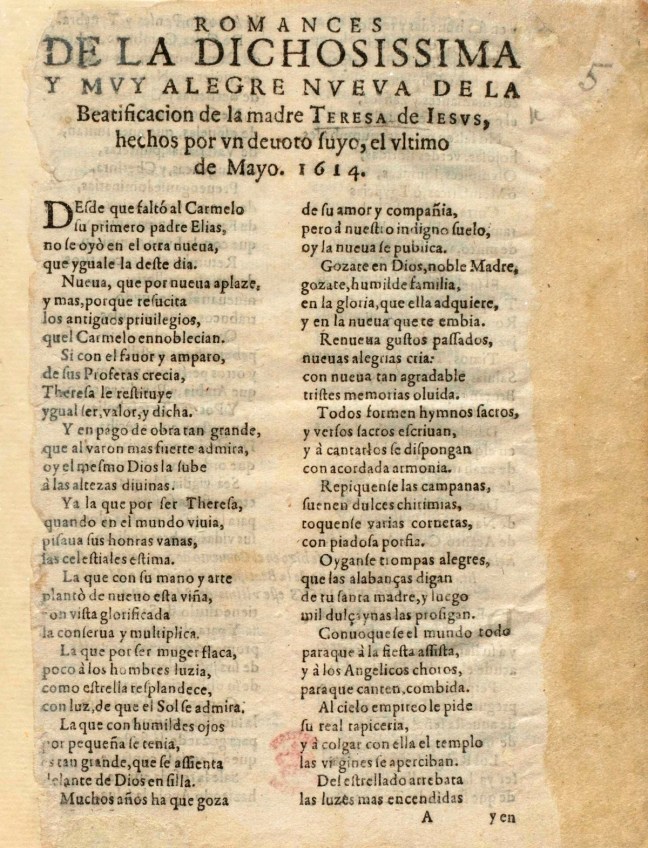 ROMANCES
DE LA DICHOSISSIMA
Y MVY ALEGRE NVEVA DE LA
Beatificacion de la madre TERESA de IESVS,
hechos por vn deuoto suyo, el vltimo
de Mayo. 1614.
5
DEsde que faltò al Carmelo
su primero padre Elias,
no se oyò en el otra nueua,
que yguale la deste dia.
Nueua, que por nueua aplaze,
y mas, porque resucita
los antiguos priuilegios,
quel Carmelo ennoblecian.
Si con el fauor y amparo,
de sus Profetas crecia,
Theresa le restituye
ygual ser, valor, y dicha.
Y en pago de obra tan grande,
que al varon mas fuerte admira,
oy el mesmo Dios la sube
à las altezas diuinas.
Ya la que por ser Theresa,
quando en el mundo viuia,
pisaua sus honras vanas,
las celestiales estima.
La que con su mano y arte
plantò de nueuo esta viña,
con vista glorificada
la conserua y multiplica.
La que por ser muger flaca,
poco à los hombres luzia,
como estrella resplandece,
con luz, de que el Sol se admira.
La que con humildes ojos
por pequeña se tenia,
es tan grande, que se assienta
delante de Dios en silla.
Muchos años ha que goza
de su amor y compañia,
pero à nuestro indigno suelo,
oy la nueua se publica.
Gozate en Dios, noble Madre,
gozate, humilde familia,
en la gloria, que ella adquiere,
y en la nueua que te embia.
Renueua gustos passados,
nueuas alegrias cria:
con nueua tan agradable
tristes memorias oluida.
Todos formen hymnos sacros,
y versos sacros escriuan,
y à cantarlos se dispongan
con acordada armonia.
Repiquense las campanas,
suenen dulces chirimias,
toquense varias cornetas,
con piadosa porfia.
Oyganse trompas alegres,
que las alabanças digan
de tu santa madre, y luego
mil dulçaynas las prosigan.
Conuoquese el mundo todo
paraque à la fiesta assista,
y à los Angelicos choros,
paraque canten, combida.
Al cielo empireo le pide
su real tapiceria,
y à colgar con ella el templo
las virgines se aperciban.
Del estrellado arrebata
las luzes mas encendidas
A
y en